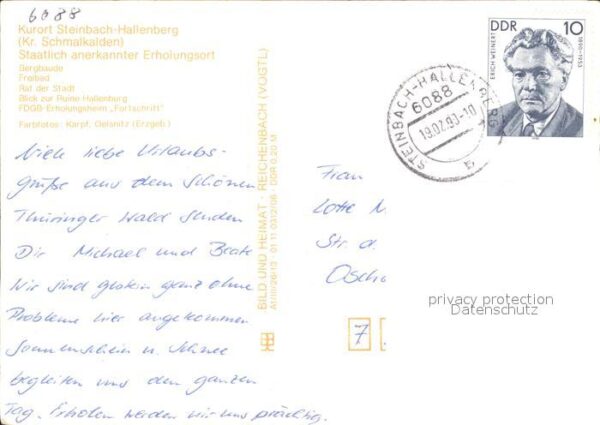 6088
Kurort Steinbach-Hallenberg
(Kr. Schmalkalden)
Staatlich anerkannter Erholungsort
Bergbaude
Freibad
Rat der Stadt
Blick zur Ruine Hallenburg
FDGB-Erholungsheim „Fortschritt"
Farbfotos: Karpf, Oelsnitz (Erzgeb.)
Viele liebe Urlaubs-
grüße aus dem schönen
Thüringer Wald senden
Dir Michael und Beate
Wir sind gestern ganz ohne
Probleme hier angekommen
Sonnenschein u. Schnee
begleiten uns den ganzen
Tag. Erholen werden wir uns prächtig.
BILD UND HEIMAT · REICHENBACH (VOGTL)
01 11 0312/06 · DDR 0,20 M
DDR 10
ERICH WEINERT 1890-1953
STEINBACH-HALLENBERG
6088
19.02.90-10
b
Frau
Lotte N
Str. d.
Oscha
7
privacy protection
Datenschutz